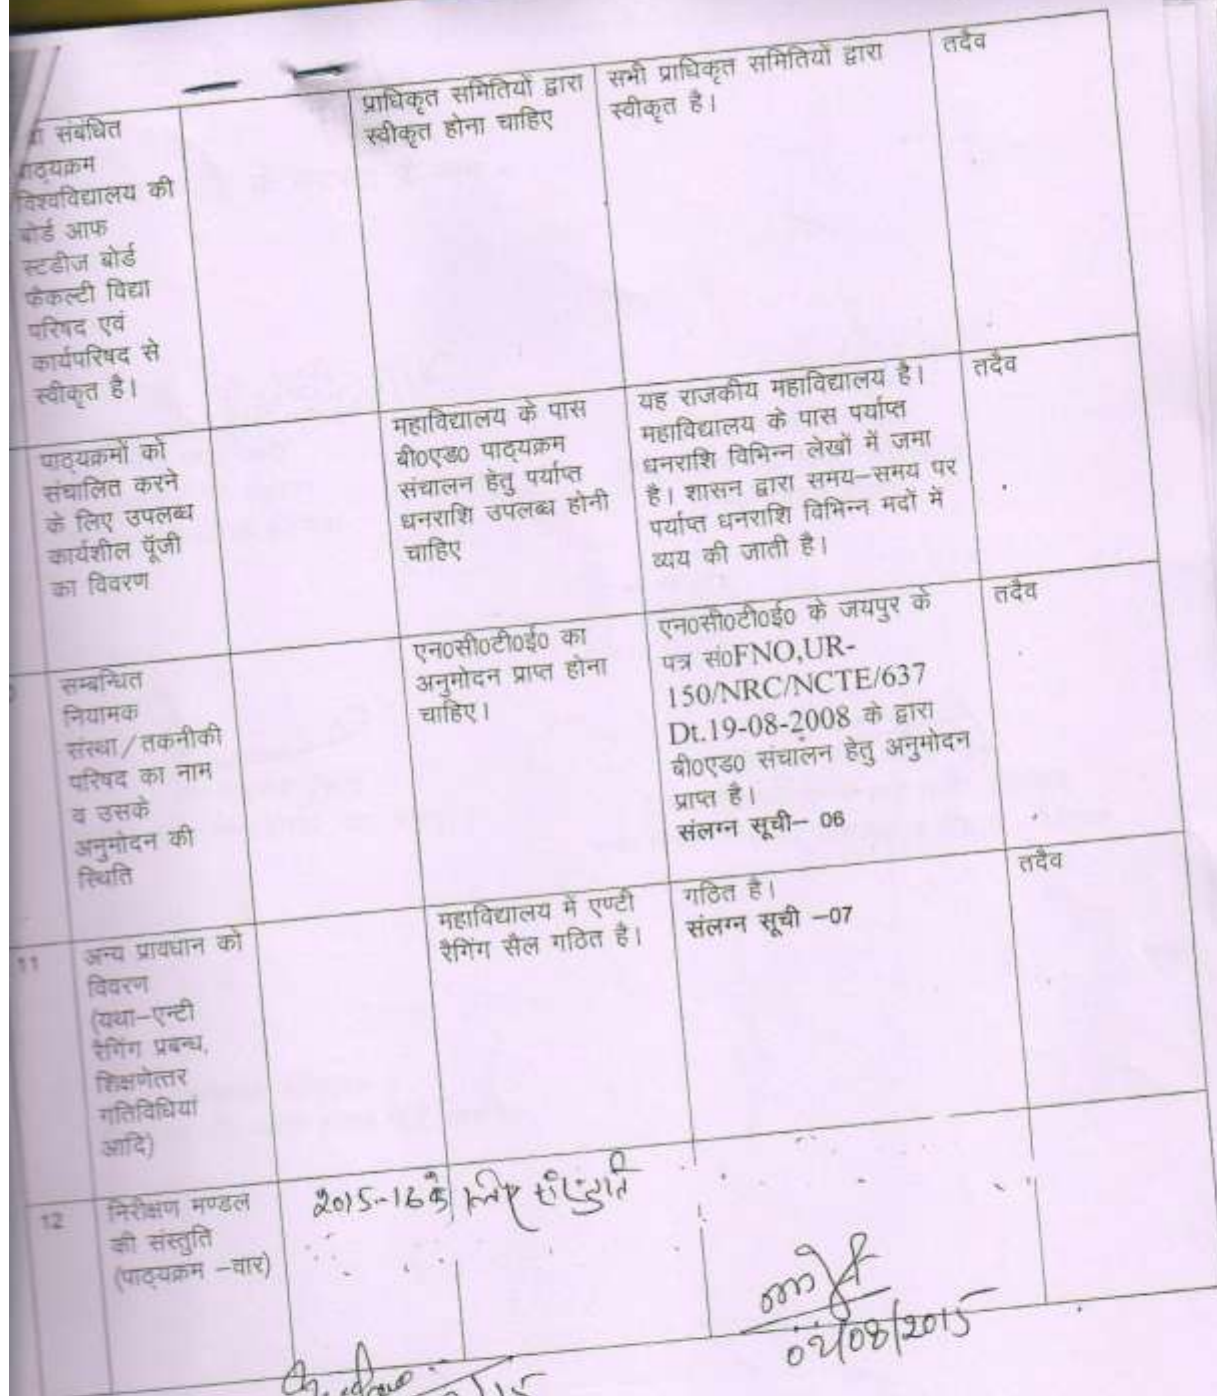 संबंधित
पाठ्यक्रम
विश्वविद्यालय की
बोर्ड आफ
स्टडीज बोर्ड
फैकल्टी विद्या
परिषद एवं
कार्यपरिषद से
स्वीकृत है।
प्राधिकृत समितियों द्वारा
स्वीकृत होना चाहिए
सभी प्राधिकृत समितियों द्वारा
स्वीकृत है।
तदैव
पाठ्यक्रमों को
संचालित करने
के लिए उपलब्ध
कार्यशील पूँजी
का विवरण
महाविद्यालय के पास
बी०एड० पाठ्यक्रम
संचालन हेतु पर्याप्त
धनराशि उपलब्ध होनी
चाहिए
यह राजकीय महाविद्यालय है।
महाविद्यालय के पास पर्याप्त
धनराशि विभिन्न लेखों में जमा
है। शासन द्वारा समय–समय पर
पर्याप्त धनराशि विभिन्न मदों में
व्यय की जाती है।
तदैव
सम्बन्धित
नियामक
संस्था/तकनीकी
परिषद का नाम
व उसके
अनुमोदन की
स्थिति
एन०सी०टी०ई० का
अनुमोदन प्राप्त होना
चाहिए।
एन०सी०टी०ई० के जयपुर के
पत्र सं०FNO,UR-
150/NRC/NCTE/637
Dt.19-08-2008 के द्वारा
बी०एड० संचालन हेतु अनुमोदन
प्राप्त है।
संलग्न सूची– 06
तदैव
11
अन्य प्रावधान को
विवरण
(यथा–एन्टी
रैगिंग प्रबन्ध,
शिक्षणेत्तर
गतिविधियां
आदि)
महाविद्यालय में एण्टी
रैगिंग सैल गठित है।
गठित है।
संलग्न सूची –07
तदैव
12
निरीक्षण मण्डल
की संस्तुति
(पाठ्यक्रम –वार)
2015-16 के लिए संस्तुति
02/08/2015